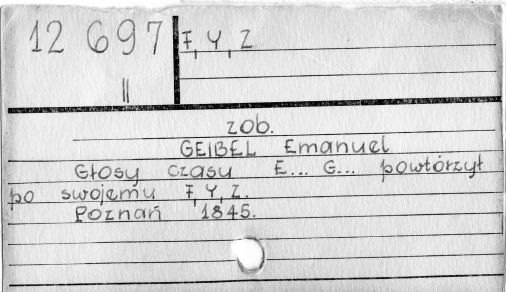 12 697
II
F, Y, Z
zob.
GEIBEL Emanuel
Głosy czasu E... G... powtórzył
po swojemu F, Y, Z.
Poznań 1845.